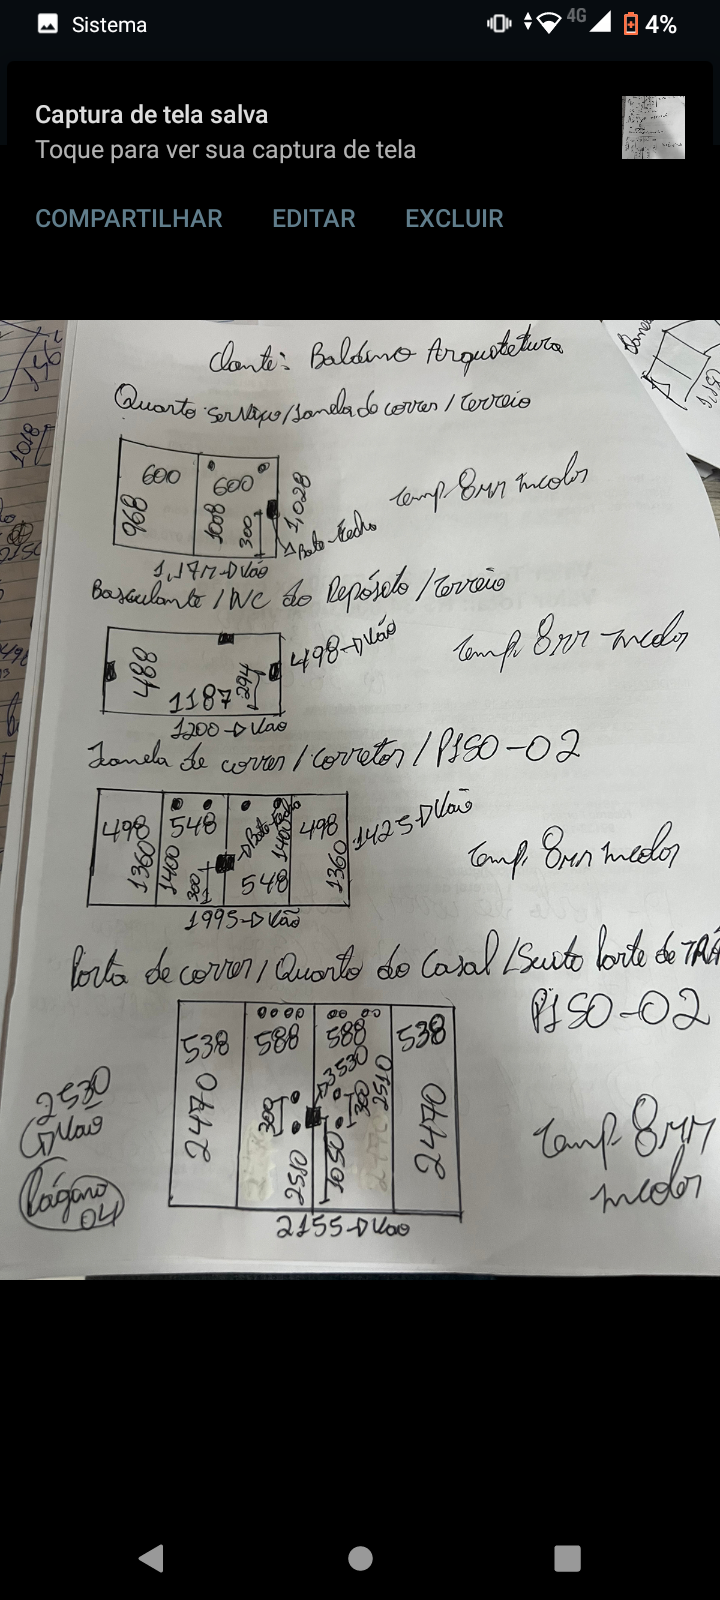 Sistema
4G
4%
Captura de tela salva
Toque para ver sua captura de tela
COMPARTILHAR EDITAR EXCLUIR
Cliente: Baldino Arquitetura
Quarto serviço/Janela de correr/terreio
156
1018
600 600
968 1008 300 1,028
Temp 8mm incolor
Bate-fecho
1,177→Vão
Basculante/WC do Depósito/terreio
488 1187 294 498→Vão
Temp. 8mm incolor
1200→Vão
Janela de correr/corretor/PISO-02
498 548 Bate-fecho 498 1425→Vão
1360 1400 300 1400 548 1360
Temp. 8mm incolor
1995→Vão
Porta de correr/Quarto do Casal/
PISO-02
538 588 588 538
2530
Vão
2470 300 3530 300 2510 2470
2510 1050
Temp. 8mm
incolor
Página
04
2155→Vão